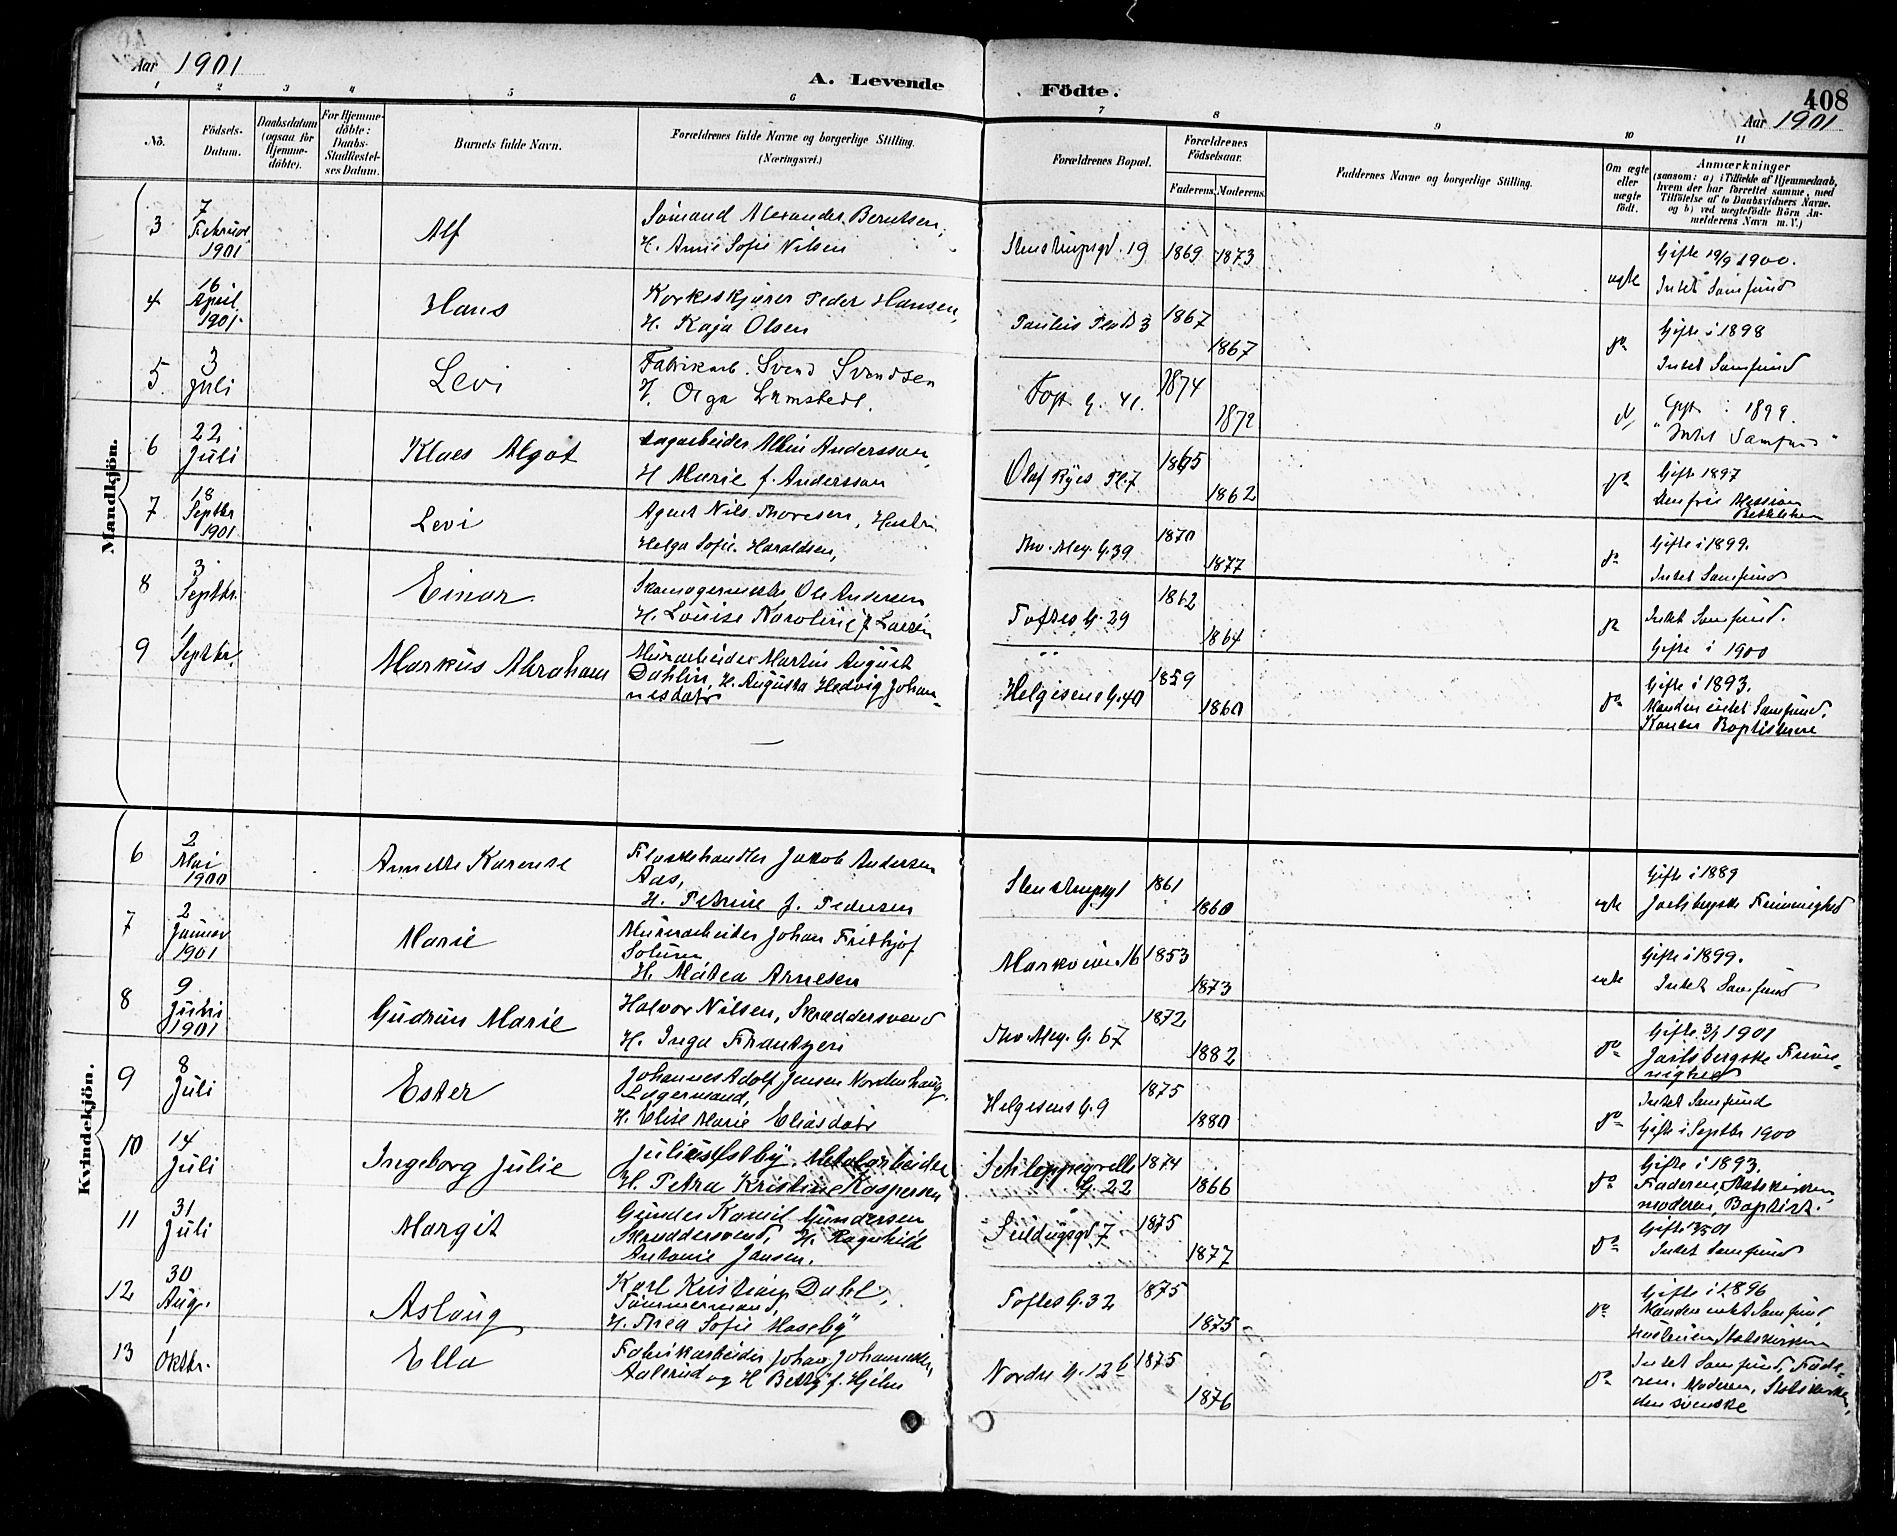 Aar 1901
A. Levende
Födte.
408
Aar 1901
1 2 3 4 5 6 7 8 9 10 11
No.
Födsels-Datum.
Daabsdatum (ogsaa for Hjemme-döbte).
For Hjemme-döbte: Daabs-Stadfæstel-ses Datum.
Barnets fulde Navn.
Forældrenes fulde Navne og borgerlige Stilling. (Næringsvei.)
Forældrenes Bopæl.
Forældrenes Födselsaar.
Faderens. Moderens.
Faddernes Navne og borgerlige Stilling.
Om ægte eller uægte födt.
Anmærkninger
(saasom: a) i Tilfælde af Hjemmedaab, hvem der har forrettet samme, med Tilföielse af to Daabsvidners Navne. og b) ved uægtefödte Börn An-melderens Navn m. V.)
Mandkjön.
3 7 Februar 1901 Alf Sömand Alexander Berntsen, H. Anne Sofie Nilsen Stenstrupgd. 19 1869 1873 ægte Gifte 19/9 1900. Intet Samfund
4 16 April 1901 Hans Kørkeskjærer Peder Hansen, H. Kaja Olsen Paulus Plads 3 1867 1867 do Gifte i 1898 Intet Samfund
5 3 Juli Levi Fabrikarb. Svend Svendsen H. Olga 41. 1874 1872 1899. "Intet Samfund"
6 22 Juli Klaes Algot Andersson, H Marie f. Andersson Olaf Ryes Pl. 7 1865 1862 do Gifte 1897 den frie Mission Bethlehem
7 18 Septbr 1901 Levi Agent Nils Thoresen, Hustru Helga Sofie Haraldsen, Thv. Mey. G. 39 1870 1877 do Gifte i 1899. Intet Samfund
8 3 Septbr. Einar Skomagermester Ole Andersen H. Louise Karoline f. Larsen Toftes G. 29 1862 1864 do Intet Samfund. Gifte i 1900
9 1 Septbr. Markus Abraham Murarbeider Martin August Dahlin, H. Augusta Hedvig Johan-nesdatr Helgesens G. 40 1859 1860 do Gifte i 1893. Manden intet Samfund. Konen Baptisterne
Kvindekjön.
6 2 Mai 1900 Annette Karense Flaskehandler Jakob Andersen Aas, H. Petrine f. Pedersen 1861 1860 ægte Gifte i 1889 Jarlsbergske Frimenighed
7 2 Januar 1901 Marie Murarbeider Johan Fridtjof Solum, H. Matea Arnesen Markveien 16 1853 1873 ægte Gifte i 1899. Intet Samfund
8 9 Juni 1901 Gudrun Marie Halvor Nilsen, Skræddersvend H. Inga Thv. Mey. G. 67 1872 1882 do Gifte 3/1 1901 Jarlsbergske Frime-nighed
9 8 Juli Ester Johannes Adolf Jensen Nordenhaug, Lagermand, H. Elise Marie Eliasdatr Helgesens G. 9 1875 1880 do Intet Samfund Gifte i Septbr 1900
10 14 Juli Ingeborg Julie Julius Østby, Metalarbeider H. Petra Kristine Kaspersen Schleppegrells G. 22 1874 1866 do Gifte i 1893. Faderen, Statskirken, moderen, Baptist.
11 31 Juli Margit Gunder Kamil Gundersen Skræddersvend, H. Ragnhild Antonie Jansen. 7 1875 1877 do Intet Samfund
12 30 Aug. Aslaug Karl Kristian Dahl, Tömmermand, H. Thea Sofie Haseby Toftes G. 32 1875 1875 do Gifte i 1896 Manden intet Samfund, Hustruen Statskirken
13 1 Oktbr. Ella Fabrikarbeider Johan Johannesen Aalerud og H Betty f. Hjelm Nordre G. 12 b 1875 1876 do Intet Samfund, Fade-ren. Moderen, Statskirken, den svenske